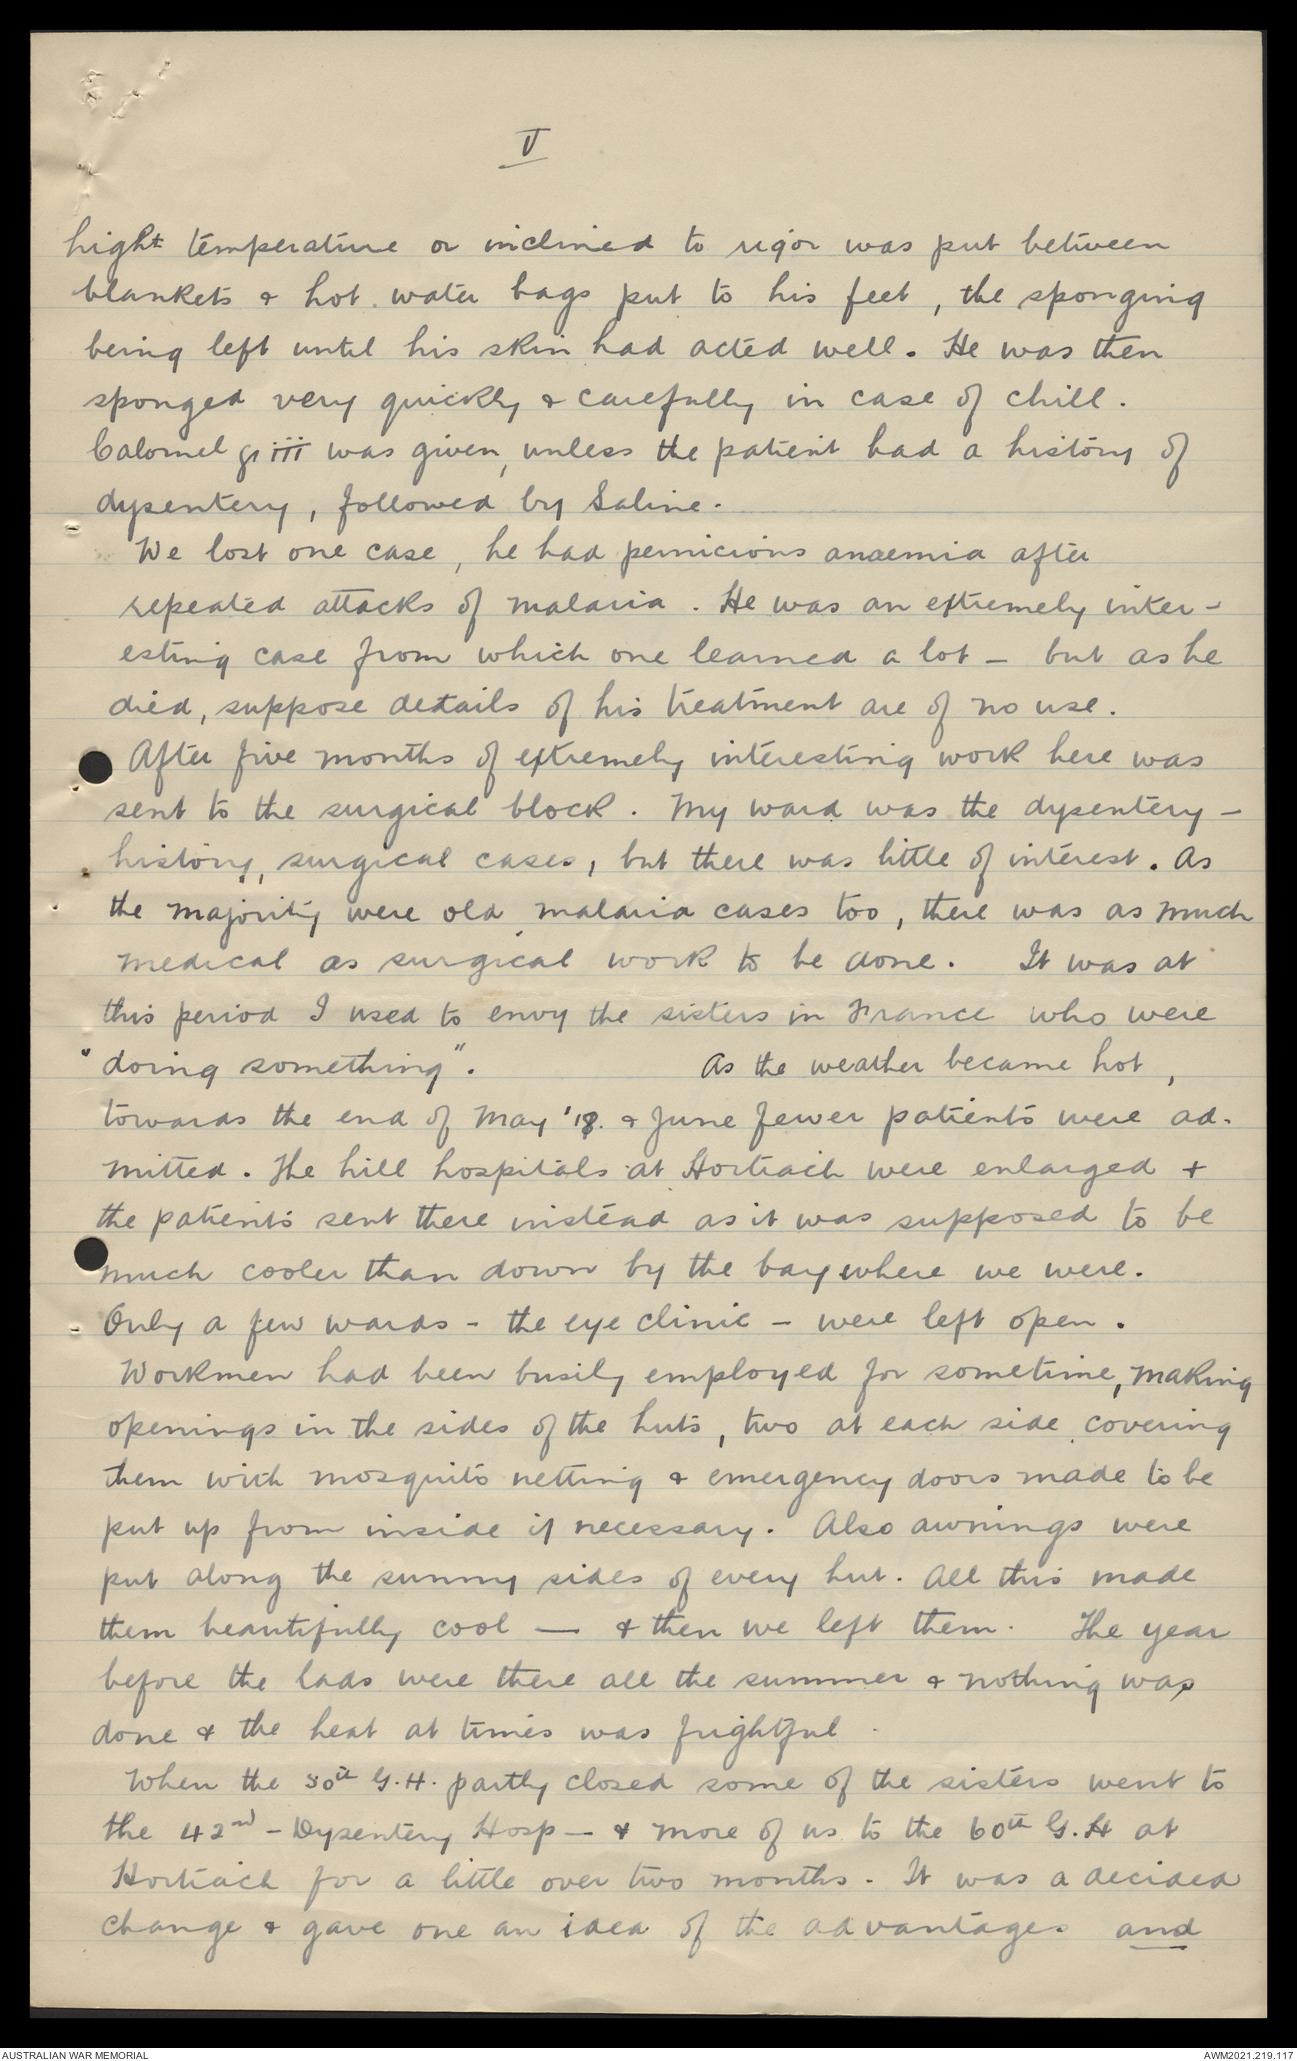 V
hight temperature or inclined to rigor was put between
blankets & hot water bags put to his feet, the sponging
being left until his skin had acted well. He was then
sponged very quickly & carefully in case of chill.
Calomel gr iii was given, unless the patient had a history of
dysentery, followed by Saline.
We lost one case, he had pernicious anaemia after
repeated attacks of malaria. He was an extremely inter-
esting case from which one learned a lot - but as he
died, suppose details of his treatment are of no use.
After five months of extremely interesting work here was
sent to the surgical block. My ward was the dysentery -
history, surgical cases, but there was little of interest. As
the majority were old malaria cases too, there was as much
medical as surgical work to be done. It was at
this period I used to envy the sisters in France who were
"doing something". As the weather became hot,
towards the end of May '18. & June fewer patients were ad-
mitted. The hill hospitals at Hortiach were enlarged &
the patients sent there instead as it was supposed to be
much cooler than down by the bay where we were.
Only a few wards - the eye clinic - were left open.
Workmen had been busily employed for sometime, making
openings in the sides of the huts, two at each side covering
them with mosquito netting & emergency doors made to be
put up from inside if necessary. Also awnings were
put along the sunny sides of every hut. All this made
them beautifully cool — & then we left them. The year
before the lads were there all the summer & nothing was
done & the heat at times was frightful.
When the 50th G.H. partly closed some of the sisters went to
the 42nd - Dysentery Hosp - & more of us to the 60th G.H at
Hortiach for a little over two months. It was a decided
change & gave one an idea of the advantages and
AUSTRALIAN WAR MEMORIAL
AWM2021.219.117